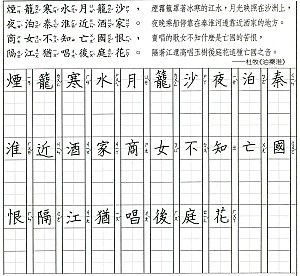 煙籠寒水月籠沙，
夜泊秦淮近酒家。
商女不知亡國恨，
隔江猶唱後庭花。
煙霧籠罩著冰寒的江水，月光映照在沙洲上，
夜晚乘船停靠在秦淮河邊靠近酒家的地方。
賣唱的歌女不知什麼是亡國的苦恨，
隔著江還演唱玉樹後庭花這種亡國之音。
—杜牧《泊秦淮》
煙籠寒水月籠沙夜泊秦
淮近酒家商女不知亡國
恨隔江猶唱後庭花